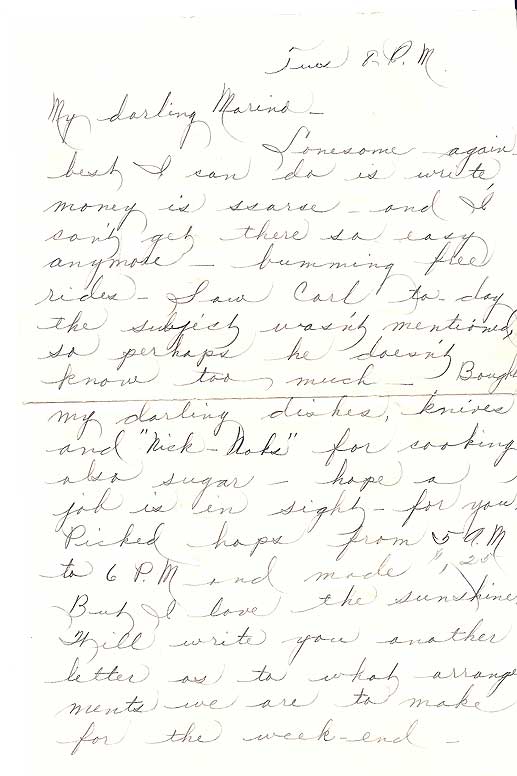 Tues 8 P.M.
My darling Marino –
Lonesome again –
best I can do is write,
money is scarse – and I
can't get there so easy
anymore – bumming free
rides – Saw Carl to-day
the subject wasn't mentioned,
so perhaps he doesn't
know too much – Bought
my darling dishes, knives
and "Nick-Naks" for cooking
also sugar – hope a
job is in sight – for you.
Picked hops from 5 A.M
to 6 P.M and made $1,25
But I love the sunshine.
Will write you another
letter as to what arrange
ments we are to make
for the week-end –